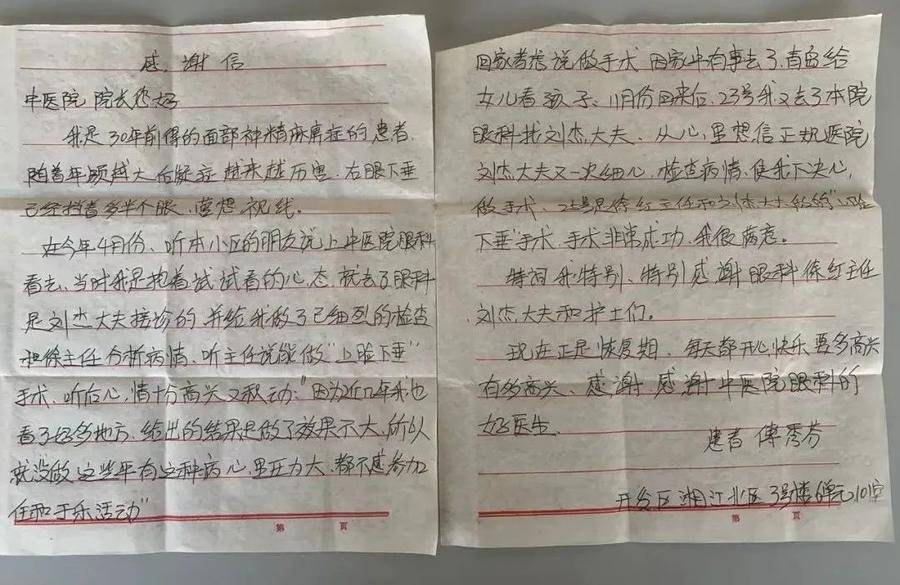 感谢信
中医院 院长您好
我是30年前得的面部神精麻痹症的患者
随着年颂越大后疑症越来越历害、右眼下垂
已经挡着多半个眼、营想视线。
在今年4月份、听本小区的朋友说上中医院眼科
看去、当时我是抱着试试看的心态、就去了眼科
是刘杰大夫接诊的、并给我做了已细烈的检查
和徐主任分析病情、听主任说能做“上脸下垂”
手术、听后心,情十分高兴又秋动:“因为近几年我也
看了好多地方、给出的结果是做了效果不大、所以
就没做、这些年有这种病心,里压力大、都不感参加
任和于乐活动”
第 页
回家考虑说做手术 因家中有事去了、青岛给
女儿看孩子、11月份回来后、23号我又去了本院
眼科找刘杰大夫、从心,里想信正规医院
刘杰大夫又一次细心、检查病情、使我下决心,
做手术、25号是徐红主任和刘杰大夫
下垂”手术、手术非常成功、我很满意。
特间我特别、特别感谢眼科徐红主任
刘杰、大夫和护士们。
现在正是恢复期、每天都开心快乐、要多高兴
有多高兴、感谢、感谢中医院眼科的
好医生
患者 傅秀芬
开发区湘江北区3号楼
第 页